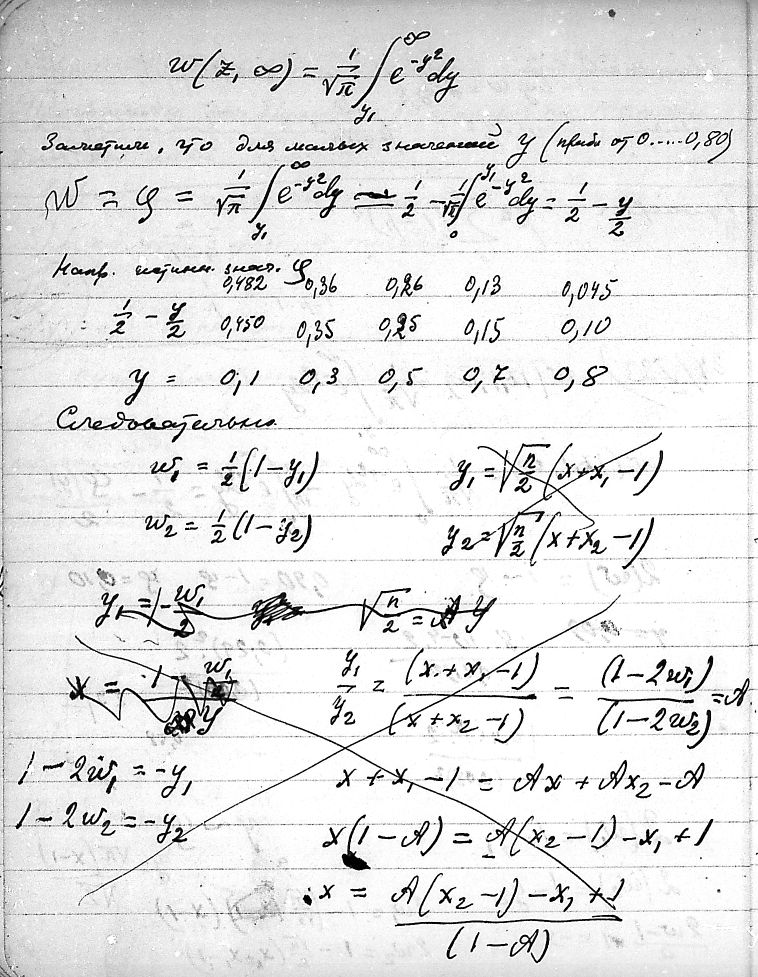 w(z, ∞) = 1/√π ∫_{y₁}^{∞} e^{-y²} dy
Заметили, что для малых значений y (прибл от 0.....0,80)
W = φ = 1/√π ∫_{y₁}^{∞} e^{-y²} dy = 1/2 - 1/√π ∫_{0}^{y₁} e^{-y²} dy = 1/2 - y/2
Напр. истинн. знач. φ
0,482 0,36 0,26 0,13 0,045
1/2 - y/2 0,450 0,35 0,25 0,15 0,10
y = 0,1 0,3 0,5 0,7 0,8
Следовательно
w₁ = 1/2 (1 - y₁) y₁ = √(n/2) (x + x₁ - 1)
w₂ = 1/2 (1 - y₂) y₂ = √(n/2) (x + x₂ - 1)
y₁ = 1 - w₁/2 √(n/2) = A y
x = 1 - w₁/2 / y y₁/y₂ = (x + x₁ - 1)/(x + x₂ - 1) = (1 - 2w₁)/(1 - 2w₂) = A
1 - 2w₁ = -y₁ x + x₁ - 1 = Ax + Ax₂ - A
1 - 2w₂ = -y₂ x(1 - A) = A(x₂ - 1) - x₁ + 1
x = A(x₂ - 1) - x₁ + 1 / (1 - A)